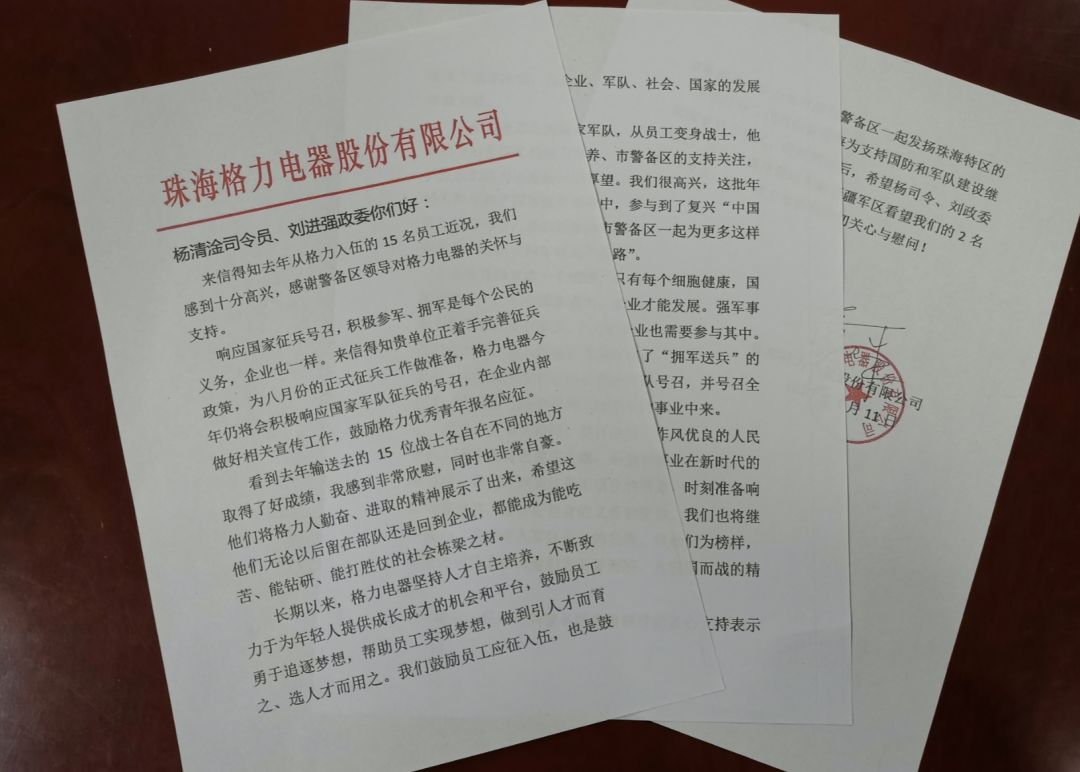 珠海格力电器股份有限公司
杨清淦司令员、刘进强政委你们好：
来信得知去年从格力入伍的 15 名员工近况，我们
感到十分高兴，感谢警备区领导对格力电器的关怀与
支持。
响应国家征兵号召，积极参军、拥军是每个公民的
义务，企业也一样。来信得知贵单位正着手完善征兵
政策，为八月份的正式征兵工作做准备，格力电器今
年仍将会积极响应国家军队征兵的号召，在企业内部
做好相关宣传工作，鼓励格力优秀青年报名应征。
看到去年输送去的 15 位战士各自在不同的地方
取得了好成绩，我感到非常欣慰，同时也非常自豪。
他们将格力人勤奋、进取的精神展示了出来，希望这
他们无论以后留在部队还是回到企业，都能成为能吃
苦、能钻研、能打胜仗的社会栋梁之材。
长期以来，格力电器坚持人才自主培养，不断致
力于为年轻人提供成长成才的机会和平台，鼓励员工
勇于追逐梦想，帮助员工实现梦想，做到引人才而育
之、选人才而用之。我们鼓励员工应征入伍，也是鼓
企业、军队、社会、国家的发展
家军队，从员工变身战士，他
养、市警备区的支持关注，
厚望。我们很高兴，这批年
中，参与到了复兴“中国
市警备区一起为更多这样
路”。
只有每个细胞健康，国
业才能发展。强军事
企业也需要参与其中。
了“拥军送兵”的
队号召，并号召全
事业中来。
作风优良的人民
事业在新时代的
时刻准备响
我们也将继
们为榜样，
国而战的精
支持表示
警备区一起发扬珠海特区的
为支持国防和军队建设继
后，希望杨司令、刘政委
疆军区看望我们的 2 名
切关心与慰问！
股份有限公司
月 11 日